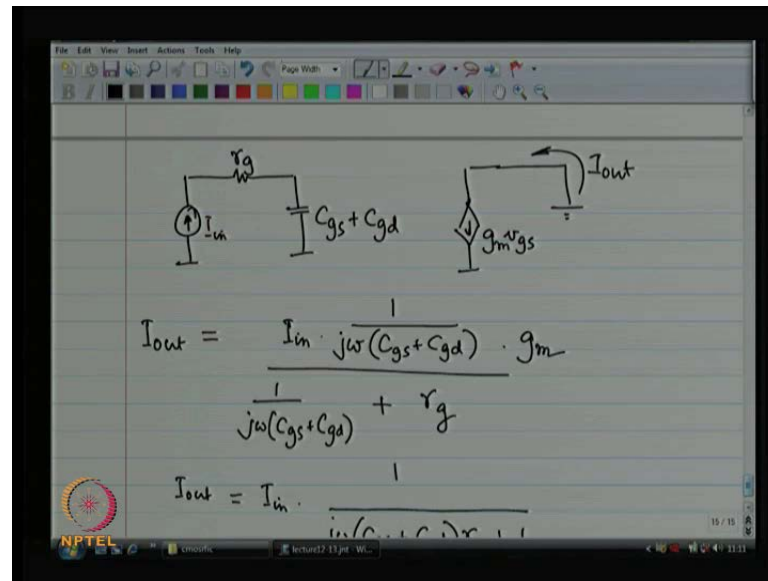 File Edit View Insert Actions Tools Help
Page Width
B I
rg
Iin
Cgs + Cgd
gm vgs
Iout
Iout = Iin · 1/(jω(Cgs + Cgd)) · gm
1/(jω(Cgs + Cgd)) + rg
Iout = Iin · 1
15 / 15
NPTEL
cmosrfic
lecture12-13.jnt - Wi...
11:11